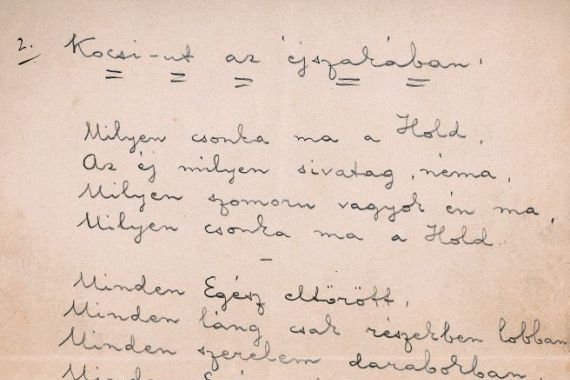 2. Kocsi-ut az éjszakában.
Milyen csonka ma a Hold,
Az éj milyen sivatag, néma,
Milyen szomoru vagyok én ma,
Milyen csonka ma a Hold.
Minden Egész eltörött,
Minden láng csak részekben lobban,
Minden szerelem darabokban,
Minden